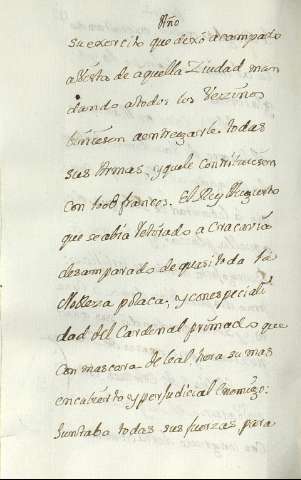 Año
su exercito que dexò acampado
a vista de aquella Ziudad, man
dando a todos los Vezinos
biniesen a entregarle todas
sus Armas, y que le contribuiesen
con 100U francos. El Rey Augusto
que se abia retirado a Cracovia
desamparado de quasi toda la
Nobleza polaca, y con especiali
dad del Cardenal primado que
con mascara de leal, hera su mas
encubierto y perjudicial enemigo:
Juntaba todas sus fuerzas para